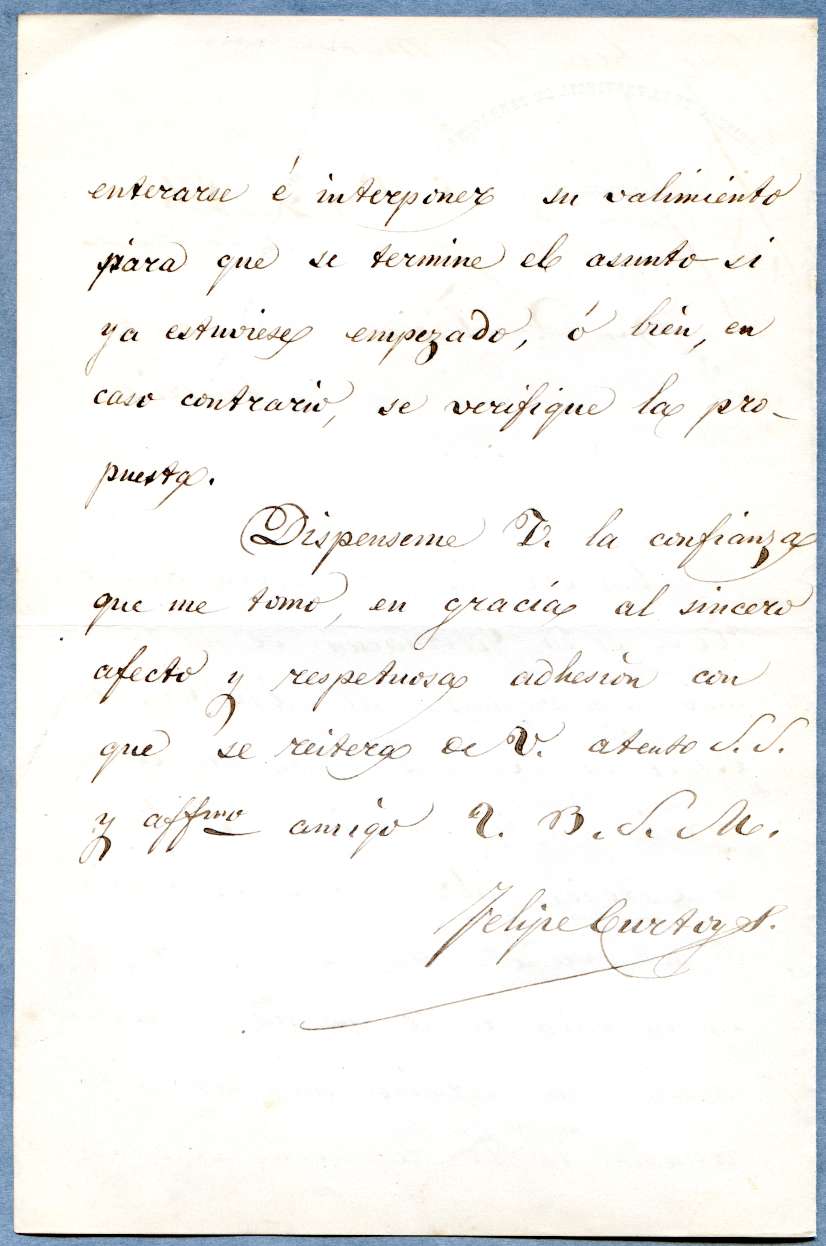 enterarse é interponer su valimiento
para que se termine el asunto si
ya estuviese empezado, ó bien, en
caso contrario, se verifique la pro-
puesta.
Dispenseme V. la confianza
que me tomo, en gracia al sincero
afecto y respetuosa adhesión con
que se reitera de V. atento S. S.
y affmo amigo Q. B. S. M.
Felipe Curtoys.